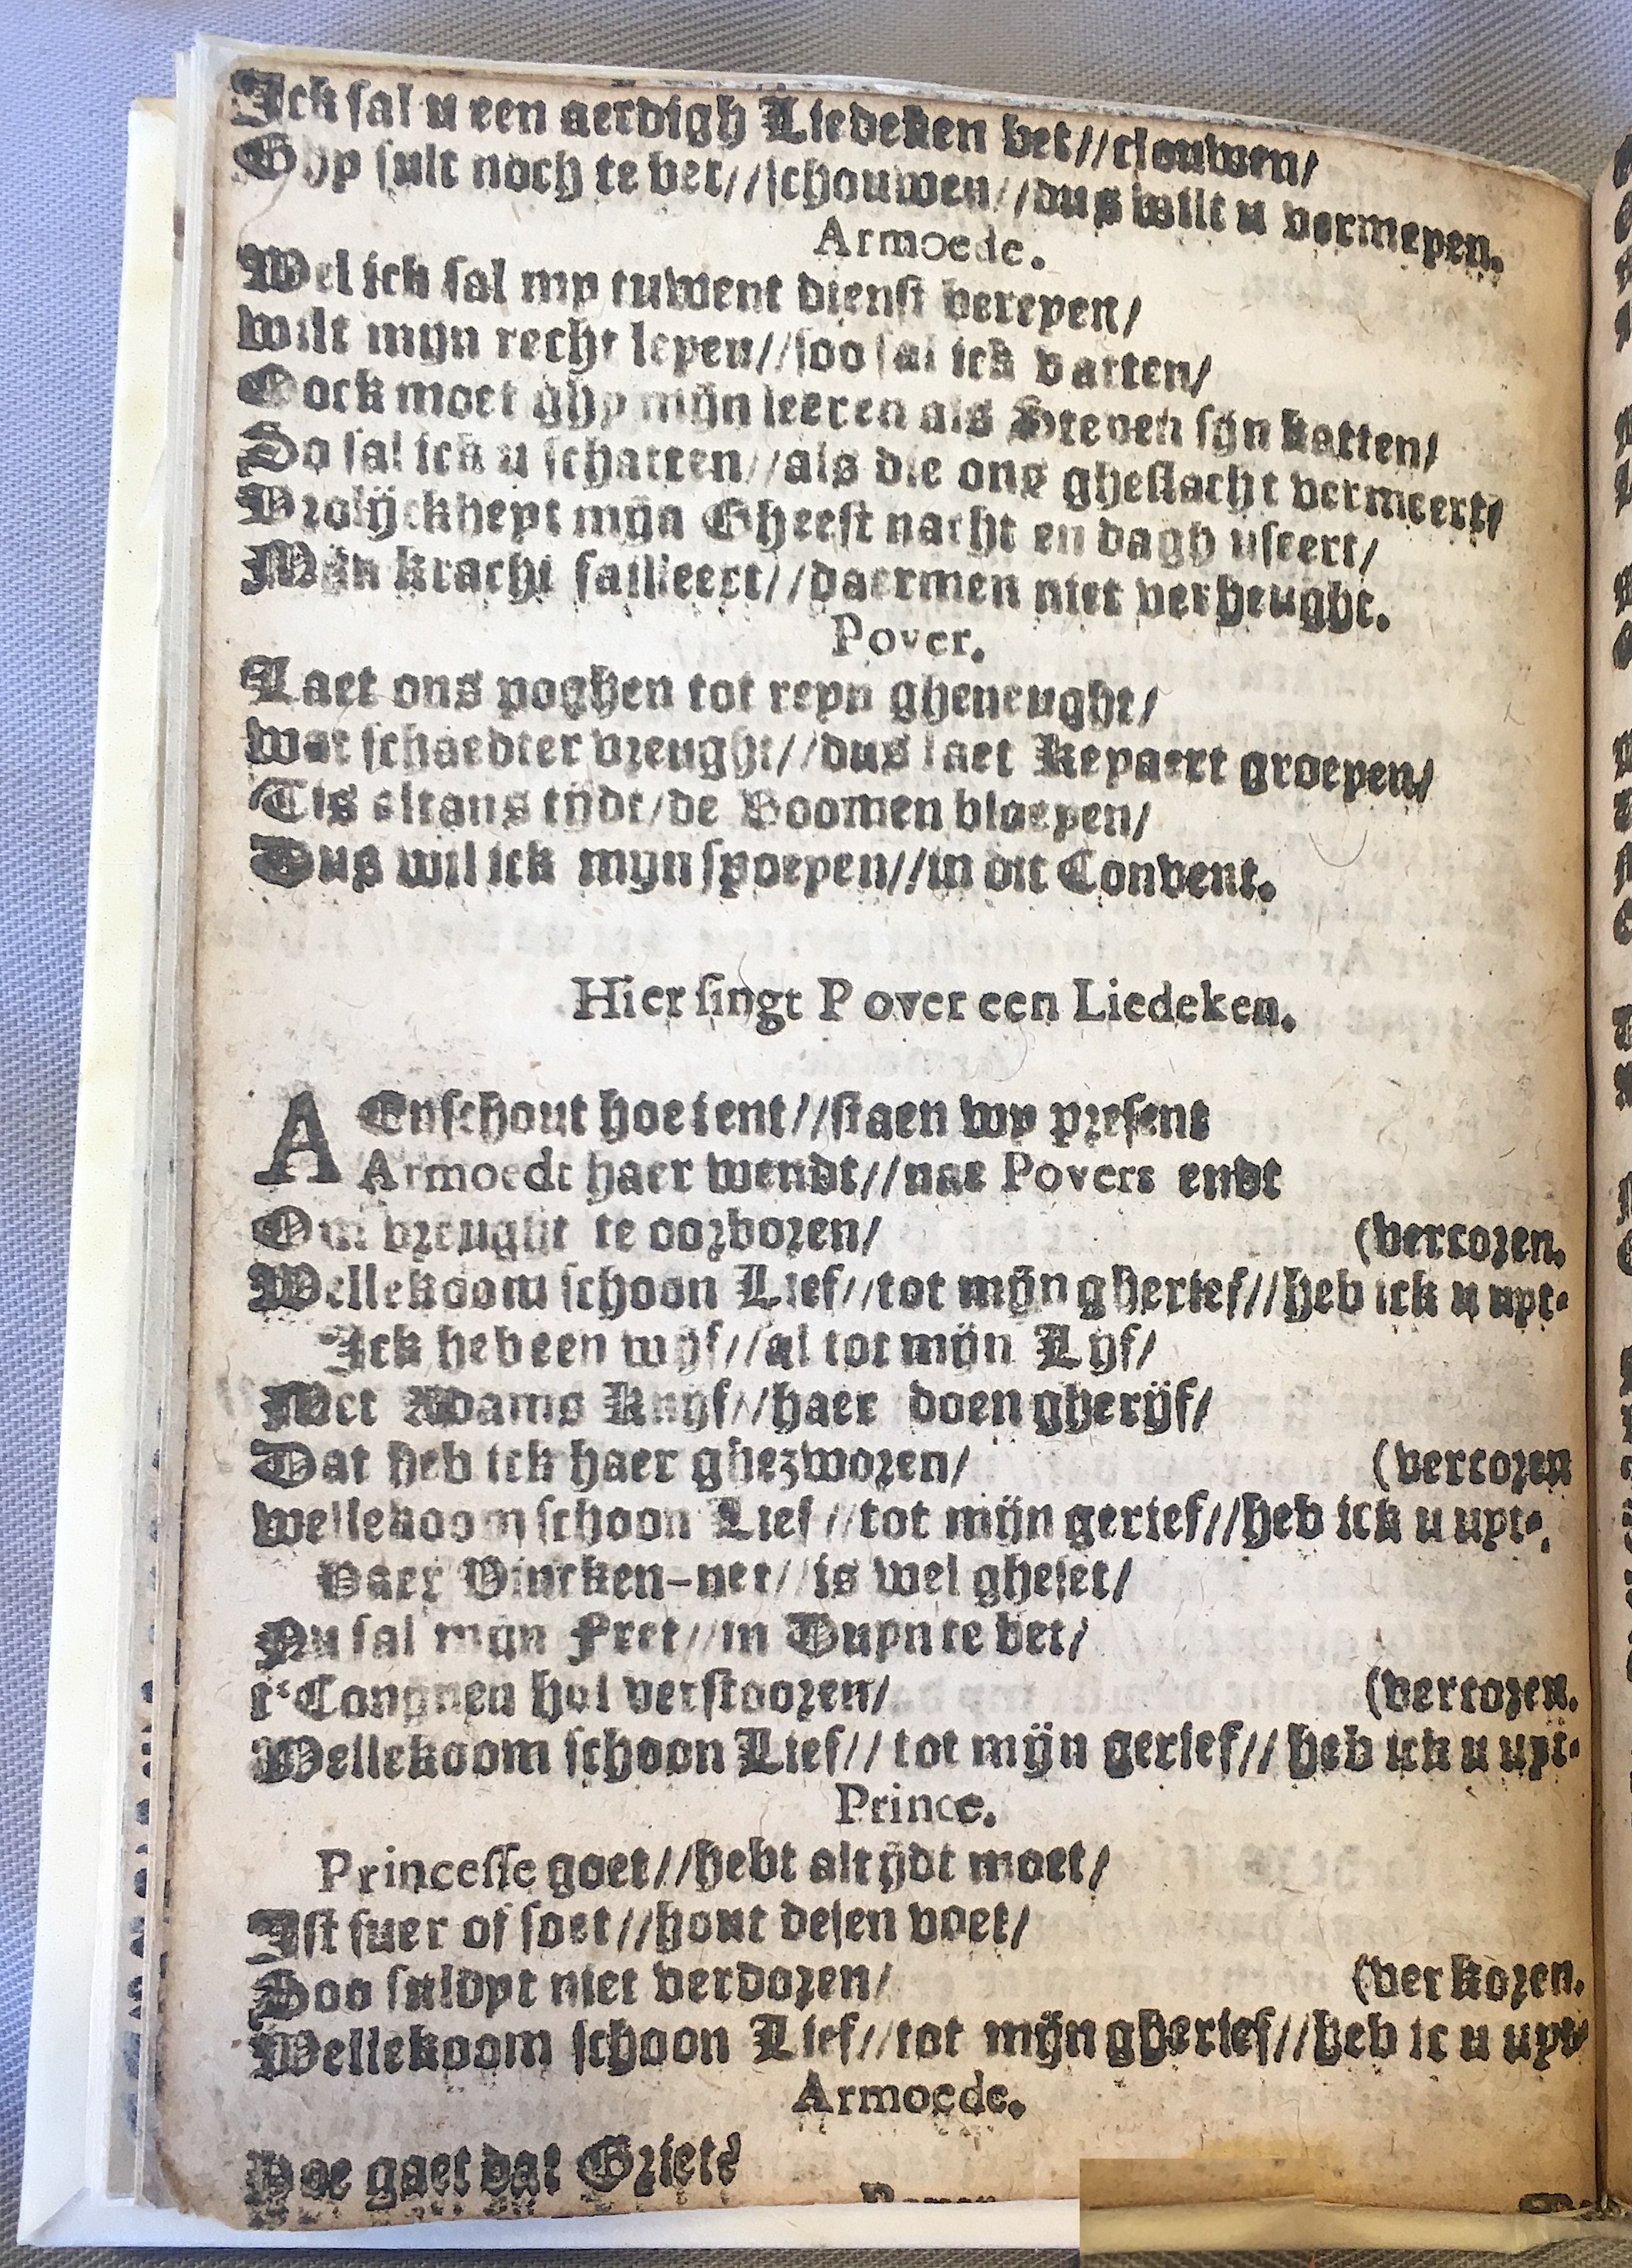 Ick sal u een aerdigh Liedeken bet//clouwen/
Ghy sult noch te bet//schouwen//dus wilt u vermeyen.
Armoede.
Wel ick sal my tuwent dienst bereyen/
Wilt mijn recht leyen//soo sal ick vatten/
Oock moet ghy mijn leeren als Steven sijn katten/
So sal ick u schatten//als die ons gheslacht vermeert/
Vrolijckheyt mijn Gheest nacht en dagh useert/
Mijn kracht failleert//daermen niet verheught.
Pover.
Laet ons poghen tot reyn gheneught/
Wat schaedter vreught//dus laet Reyaert groeyen/
Tis altans tijdt/de Boomen bloeyen/
Dus wil ick mijn spoeyen//in dit Convent.
Hier singt Pover een Liedeken.
AEnschout hoe jent//staen wy present
Armoedt haer wendt//nae Povers endt
Om vreught te oorboren/ (vercoren.
Wellekoom schoon Lief//tot mijn gherief//heb ick u uyt-
Ick heb een wijf//al tot mijn Lijf/
Met Adams Knijf//haer doen gherijf/
Dat heb ick haer ghezworen/ (vercoren
Wellekoom schoon Lief//tot mijn gerief//heb ick u uyt-
Haer Vincken-net//is wel gheset/
Nu sal mijn Fret//in Duyn te bet/
t'Congnen hol verstooren/ (vercoren.
Wellekoom schoon Lief//tot mijn gerief//heb ick u uyt-
Prince.
Princesse goet//hebt altijdt moet/
Ist suer of soet//hout desen voet/
Soo suldyt niet verdoren/ (verkoren.
Wellekoom schoon Lief//tot mijn gherief//heb ic u uyt-
Armoede.
Hoe gaet dat Griet?